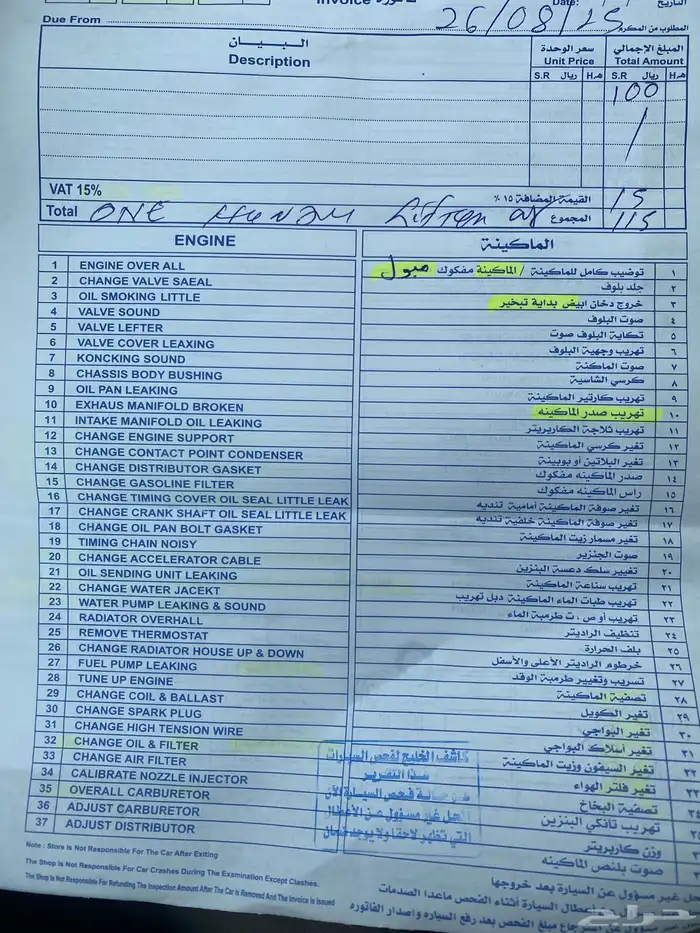 Invoice فاتورة
Date: التاريخ
26/08/25
Due From المطلوب من المكرم
البيان سعر الوحدة المبلغ الإجمالي
Description Unit Price Total Amount
S.R ريال هـ.H S.R ريال هـ.H
100
VAT 15% القيمة المضافة ١٥ ٪ 15
Total ONE المجموع 115
ENGINE الماكينة
1 ENGINE OVER ALL توضيب كامل للماكينة / الماكينة مفكوك ١
2 CHANGE VALVE SAEAL جلد بلوف ٢
3 OIL SMOKING LITTLE خروج دخان ابيض بداية تبخير ٣
4 VALVE SOUND صوت البلوف ٤
5 VALVE LEFTER تكاية البلوف صوت ٥
6 VALVE COVER LEAXING تهريب وجهية البلوف ٦
7 KONCKING SOUND صوت الماكنة ٧
8 CHASSIS BODY BUSHING كرسي الشاسية ٨
9 OIL PAN LEAKING تهريب كارتير الماكينة ٩
10 EXHAUS MANIFOLD BROKEN تهريب صدر الماكينه ١٠
11 INTAKE MANIFOLD OIL LEAKING تهريب ثلاجة الكاربريتر ١١
12 CHANGE ENGINE SUPPORT تغير كرسي الماكينة ١٢
13 CHANGE CONTACT POINT CONDENSER تغير البلاتين أو بوبينة ١٣
14 CHANGE DISTRIBUTOR GASKET صدر الماكينه مفكوك ١٤
15 CHANGE GASOLINE FILTER راس الماكينه مفكوك ١٥
16 CHANGE TIMING COVER OIL SEAL LITTLE LEAK تغير صوفة الماكينة أمامية تنديه ١٦
17 CHANGE CRANK SHAFT OIL SEAL LITTLE LEAK تغير صوفة الماكينة خلفية تنديه ١٧
18 CHANGE OIL PAN BOLT GASKET تغير مسمار زيت الماكينة ١٨
19 TIMING CHAIN NOISY صوت الجنزير ١٩
20 CHANGE ACCELERATOR CABLE تغيير سلك دعسة البنزين ٢٠
21 OIL SENDING UNIT LEAKING تهريب سناعة الماكينة ٢١
22 CHANGE WATER JACEKT تهريب طبات الماء الماكينة دبل تهريب ٢٢
23 WATER PUMP LEAKING & SOUND تهريب أو ص . ت طرمبة الماء ٢٣
24 RADIATOR OVERHALL تنظيف الراديتر ٢٤
25 REMOVE THERMOSTAT بلف الحرارة ٢٥
26 CHANGE RADIATOR HOUSE UP & DOWN خرطوم الراديتر الأعلى والأسفل ٢٦
27 FUEL PUMP LEAKING تسريب وتغيير طرمبة الوقد ٢٧
28 TUNE UP ENGINE تصفية الماكينة ٢٨
29 CHANGE COIL & BALLAST تغير الكويل ٢٩
30 CHANGE SPARK PLUG تغير البواجي ٣٠
31 CHANGE HIGH TENSION WIRE تغير أسلاك البواجي ٣١
32 CHANGE OIL & FILTER تغير السيفون وزيت الماكينة ٣٢
33 CHANGE AIR FILTER تغير فلتر الهواء ٣٣
34 CALIBRATE NOZZLE INJECTOR تصفية البخاخ ٣٤
35 OVERALL CARBURETOR تهريب تانكي البنزين
36 ADJUST CARBURATOR وزن كاربريتر
37 ADJUST DISTRIBUTOR صوت بلنص الماكينه
كاشف الخليج لفحص السيارات
هذا التقرير
فحص السيارة الآن
المحل غير مسؤول عن الأعطال
التي تظهر لاحقا ولا يوجد ضمان
Note : Store Is Not Responsible For The Car After Exiting
The Shop Is Not Responsible For Car Crashes During The Examination Except Clashes.
The Shop Is Not Responsible For Refunding The Inspection Amount After The Car Is Removed And The Invoice is Issued
غير مسؤول عن السيارة بعد خروجها
أعطال السيارة أثناء الفحص ماعدا الصدمات
مبلغ الفحص بعد رفع السياره و اصدار الفاتوره
حراج